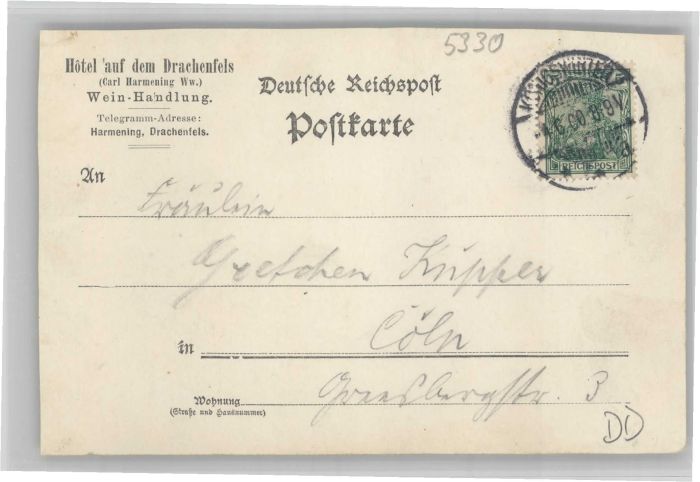 5330
Hôtel auf dem Drachenfels
(Carl Harmening Ww.)
Wein-Handlung.
Telegramm-Adresse:
Harmening, Drachenfels.
Deutsche Reichspost
Postkarte
REICHSPOST
An
Fräulein
Gretchen Küpper
in Cöln
Wohnung
(Straße und Hausnummer)
3
DD